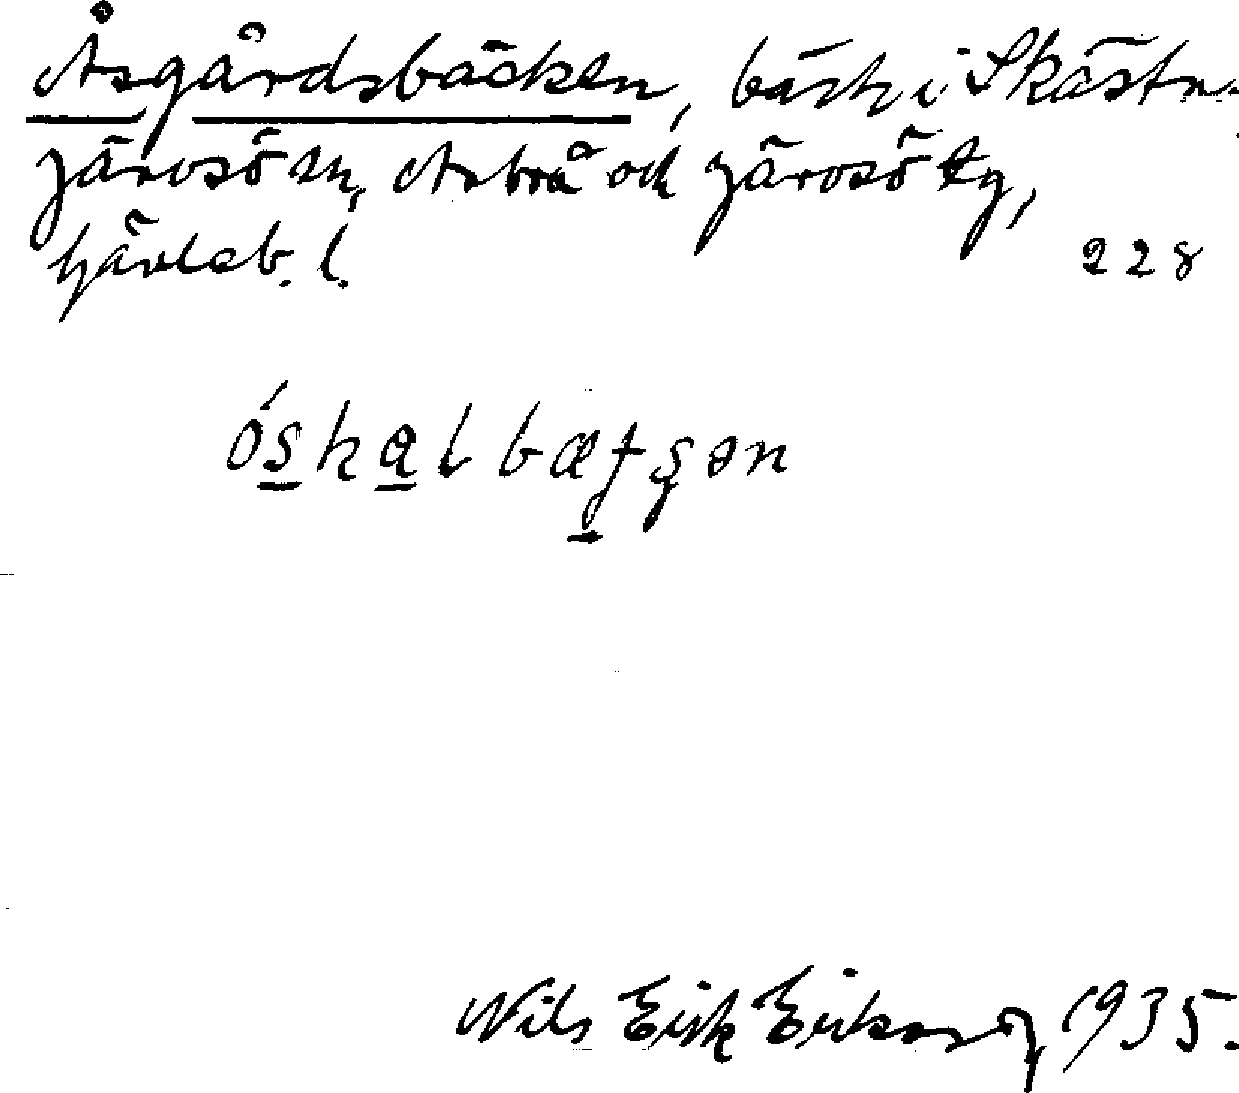 Åsgårdsbäcken, bäck i Skästra,
Järvsö sn, Arbrå och Järvsö tg,
Gävleb. l. 228
óskalbæʈʂən
Nils Erik Eriksson 1935.